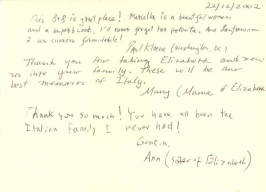 22/12/2002
This B+B is great place! Marcella is a beautiful woman
and a superb cook, I'll never forget her polenta. And
è un cuoco formidabile!
(Washington, DC)
Thank you for taking Elizabeth and now
us into your family. These will be our
best memories of Italy.
Mary (Mama of Elizabeth
Thank you so much! You have all been the
Italian Family I never had!
Grazie,
Ann (sister of Elizabeth)